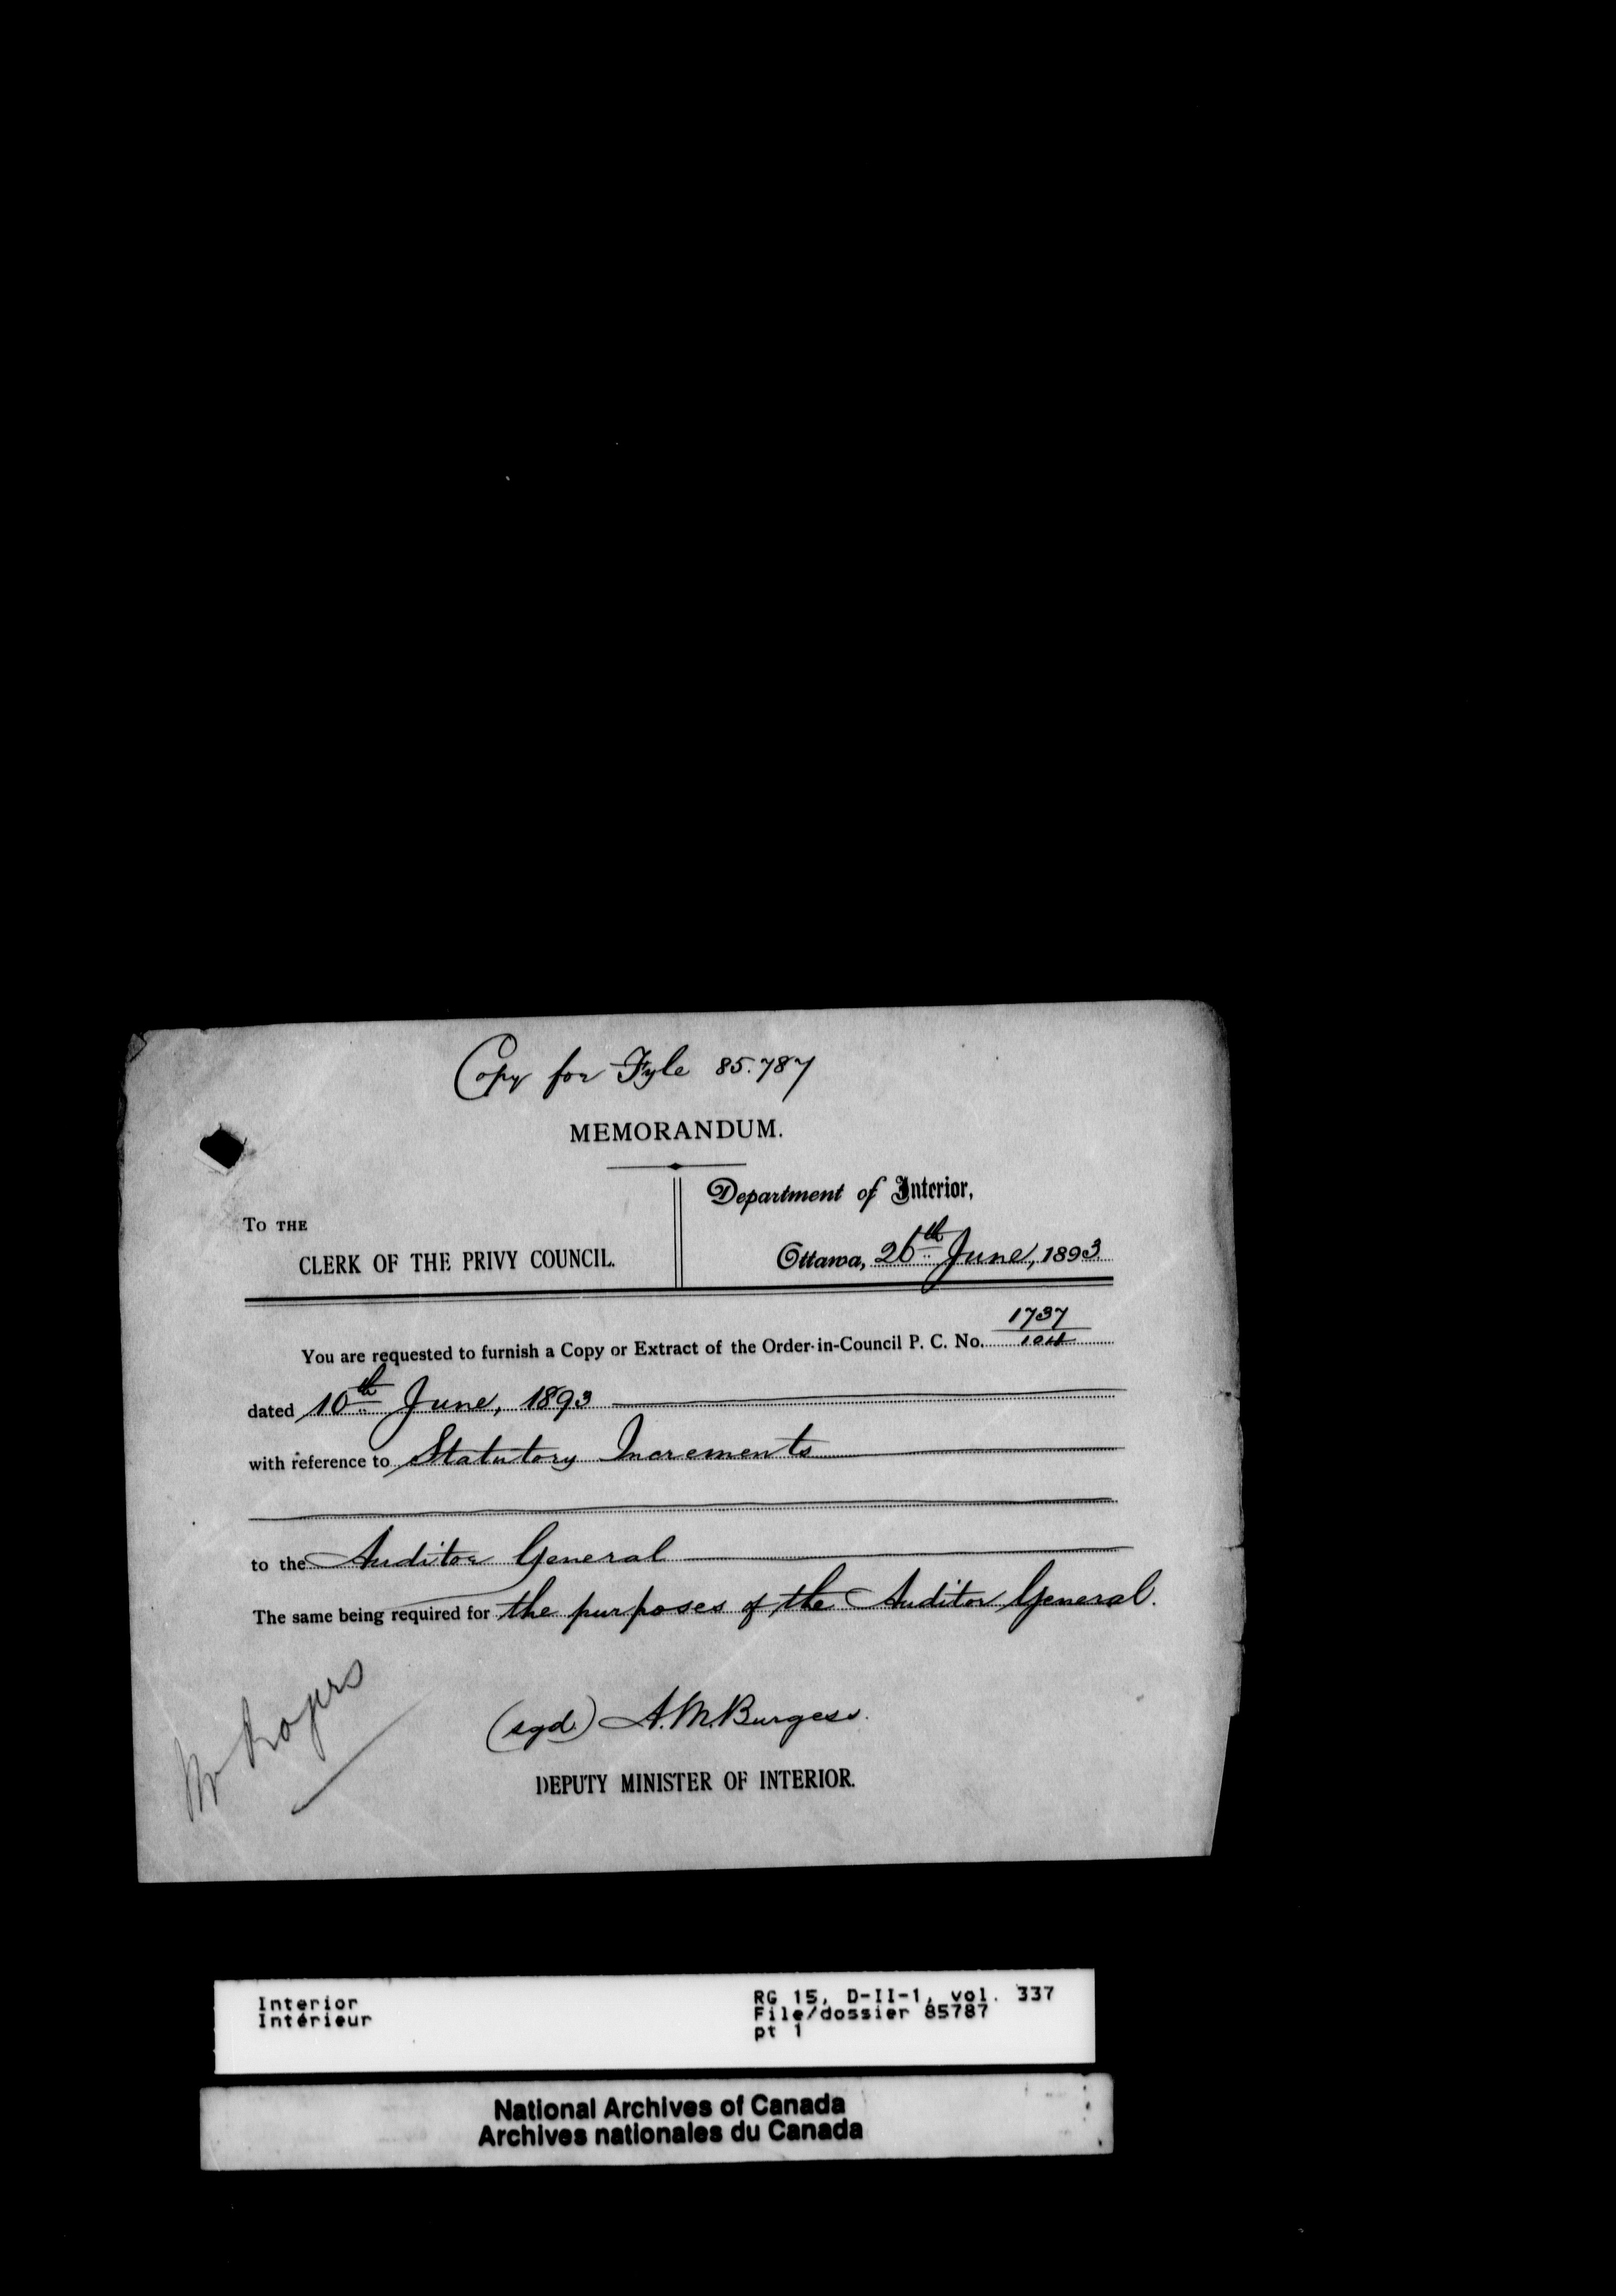 Copy for Fyle 85.787
MEMORANDUM.
Department of Interior,
To THE
CLERK OF THE PRIVY COUNCIL.
Ottawa, 26th June, 1893
1737
You are requested to furnish a Copy or Extract of the Order-in-Council P. C. No.
dated 10th June, 1893
with reference to Statutory Increments
to the Auditor General
The same being required for the purposes of the Auditor General.
Mr Rogers
(sgd) A. M. Burgess.
DEPUTY MINISTER OF INTERIOR.
Interior
Intérieur
RG 15, D-II-1, vol. 337
File/dossier 85787
pt 1
National Archives of Canada
Archives nationales du Canada